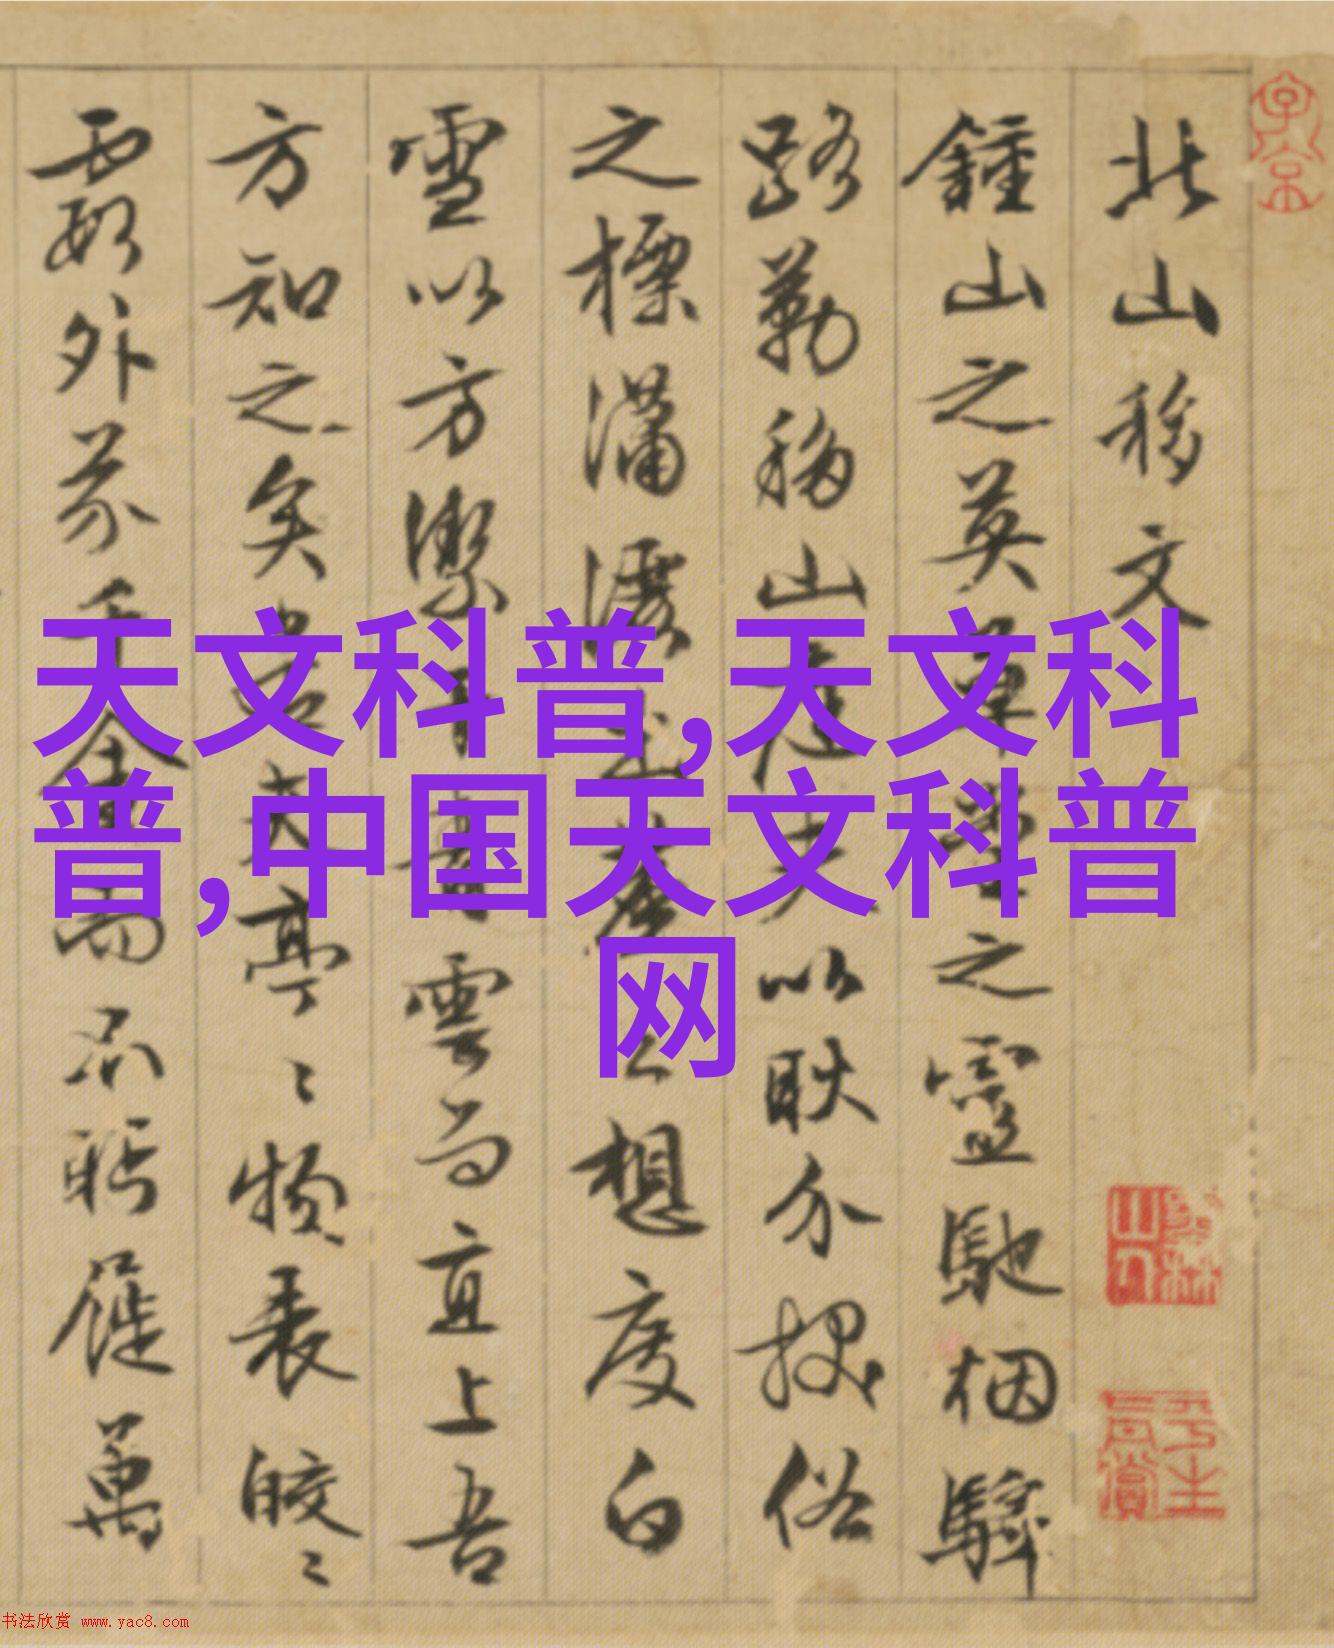 子京
北山移文
鍾山之英草堂之靈馳烟驛
路勒移山庭夫以耿介拔俗
之標瀟灑出塵之想度白
雪以方潔干青雲而直上吾
方知之矣若夫亭〻物表皎〻
霞外芥千金而不眄屣萬
墨林山人
平生真賞
天文科普,天文科
普,中国天文科普
网
书法欣赏 www.yac8.com